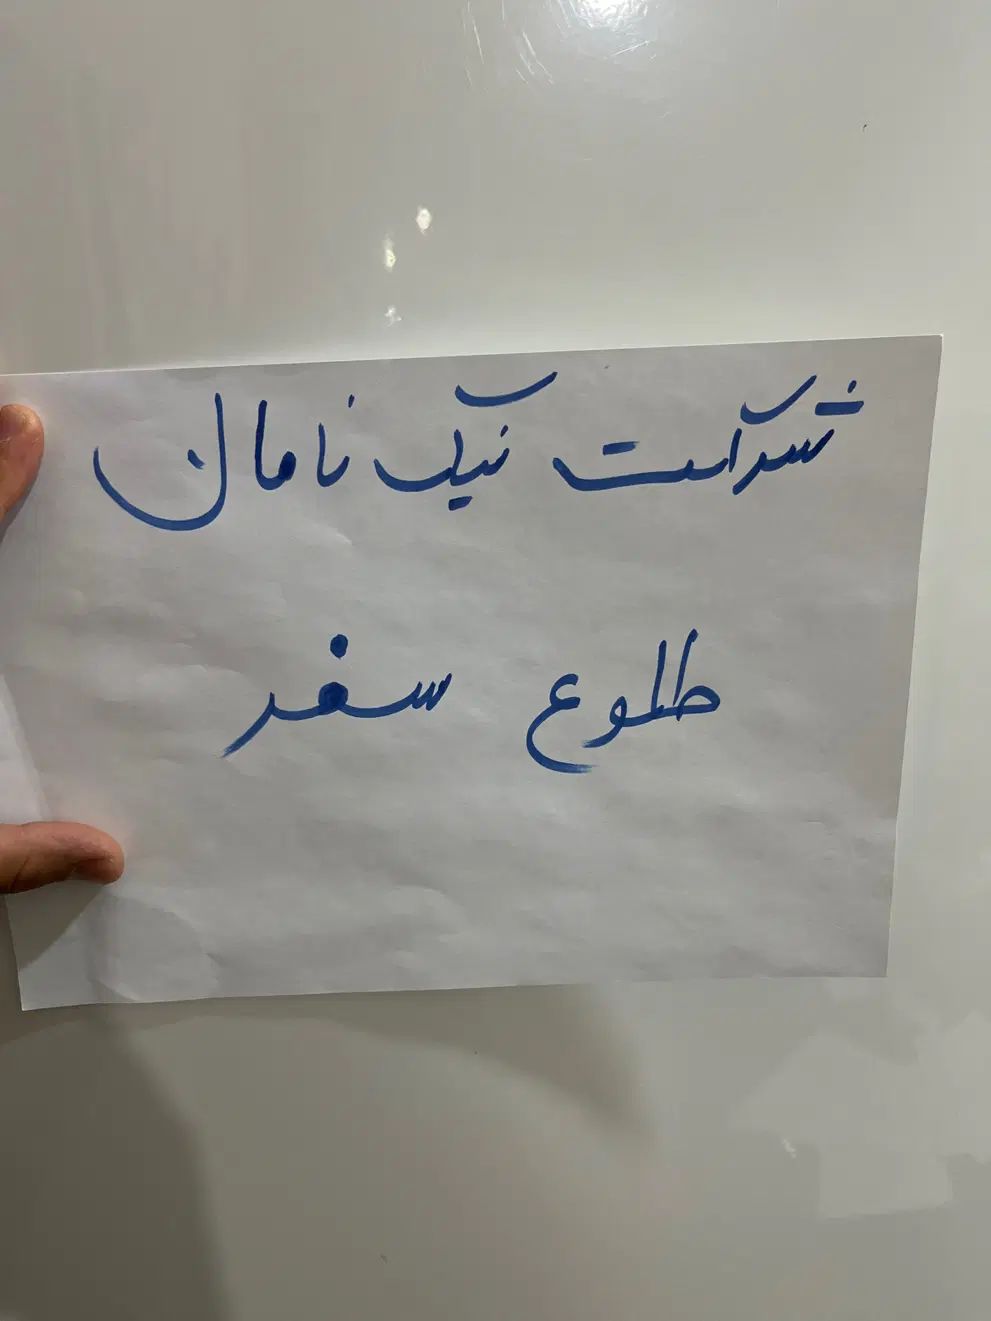 شرکت نیک نامان
طلوع سفر